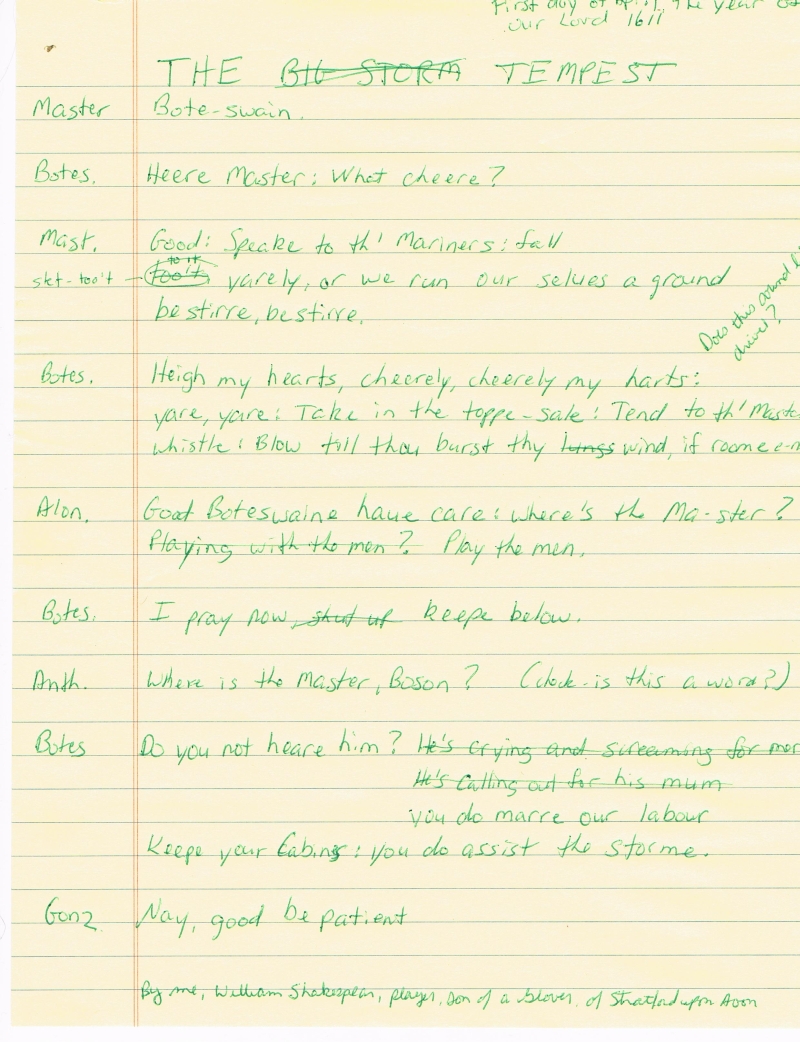 First day of April, the year of
our Lord 1611
THE BIG STORM TEMPEST
Master Bote-swain.
Botes. Heere Master: What cheere?
Mast. Good: Speake to th' Mariners: fall
to it
skt-too't too't yarely, or we run our selues a ground
bestirre, bestirre.
Does this sound
drivel?
Botes. Heigh my hearts, cheerely, cheerely my harts:
yare, yare: Take in the toppe-sale: Tend to th' Maste
whistle: Blow till thou burst thy lungs wind, if roome e-n
Alon. Good Boteswaine haue care: where's the Ma-ster?
Playing with the men? Play the men.
Botes. I pray now, shut up keepe below.
Anth. Where is the Master, Boson? (check-is this a word?)
Botes Do you not heare him? He's crying and screaming for mer
He's calling out for his mum
you do marre our labour
Keepe your Cabins: you do assist the storme.
Gonz. Nay, good be patient
By me, William Shakespear, player, son of a Glover, of Stratford upon Avon